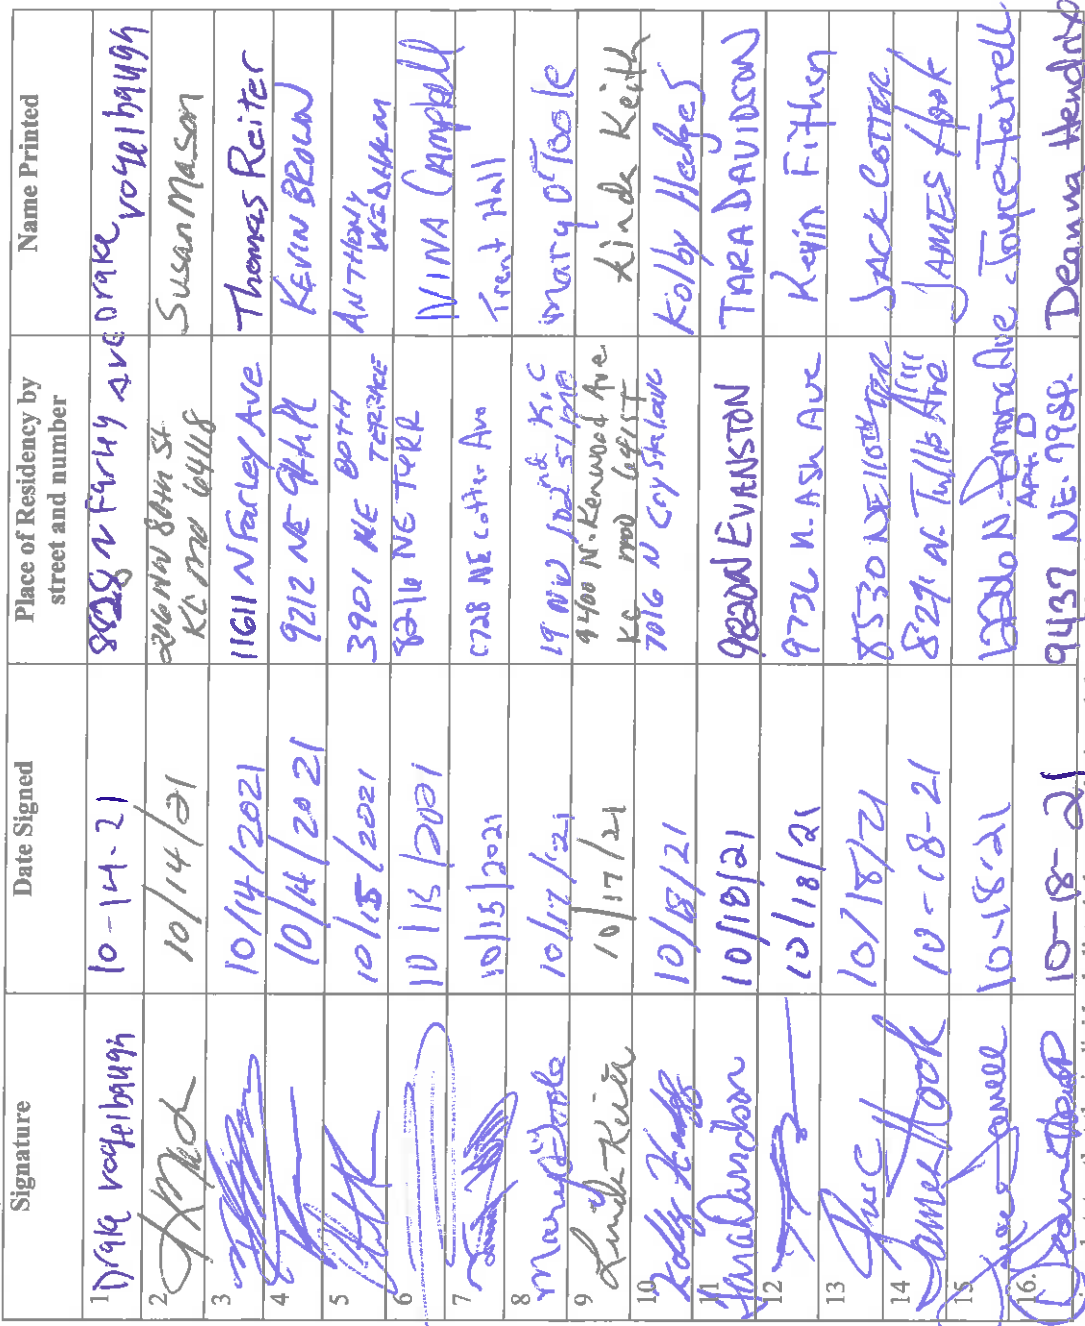 Signature Date Signed Place of Residency by street and number Name Printed
1 Drake vogelbaugh 10-14-21 8828 N Farley ave Drake vogelbaugh
2 10/14/21 206 NW 80th St. KC mo 64118 Susan Mason
3 10/14/2021 11611 N Farley Ave Thomas Reiter
4 10/14/2021 9212 NE 94th Pl KEVIN BROWN
5 10/15/2021 3901 NE 80TH TERRACE ANTHONY
6 10/15/2021 8216 NE NINA CAMPbell
7 10/15/2021 6728 NE Cotter Ave Trent Hall
8 Mary O'Toole 10/17/21 19 NW 102nd St KC mo mary O'Toole
9 Linda Keith 10/17/21 9400 N. Kenwood Ave. KC mo Linda Keith
10 Kolby Hedges 10/18/21 7016 N Crystal ave Kolby Hedges
11 Tara Davidson 10/18/21 9820 N EVANSTON TARA DAVIDSON
12 10/18/21 9736 N. Ash Ave Kevin Fithen
13 10/18/21 8530 NE 110th TER. JACK COTTER
14 James Hook 10-18-21 8291 N. Tullis Ave JAMES Hook
15 Joyce Farrell 10-18-21 N. Pomona Ave Apt. D Joyce Farrell
16. Deanna Hendrix 10-18-21 9437 NE. 79 St. Deanna Hendrix